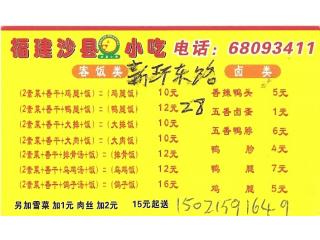 福建沙县小吃 电话：68093411
套饭类 新环东路 卤类
(2套菜+香干+鸡腿+饭) = (鸡腿饭) 10元 香辣鸭头 5元
12元 28 五香卤蛋 1元
(2套菜+香干+大排+饭) = (大排饭) 10元 五香鸭胗 6元
(2套菜+香干+大肉+饭) = (大肉饭) 10元 鸭脖 4元
(2套菜+香干+排骨汤+饭) = (排骨饭) 12元
(2套菜+香干+乌鸡汤+饭) = (乌鸡饭) 12元 鸭腿 7元
(2套菜+香干+鸽子汤+饭) = (鸽子饭) 16元 鸡腿 5元
另加雪菜 加1元 肉丝 加2元 15元起送 15021591649